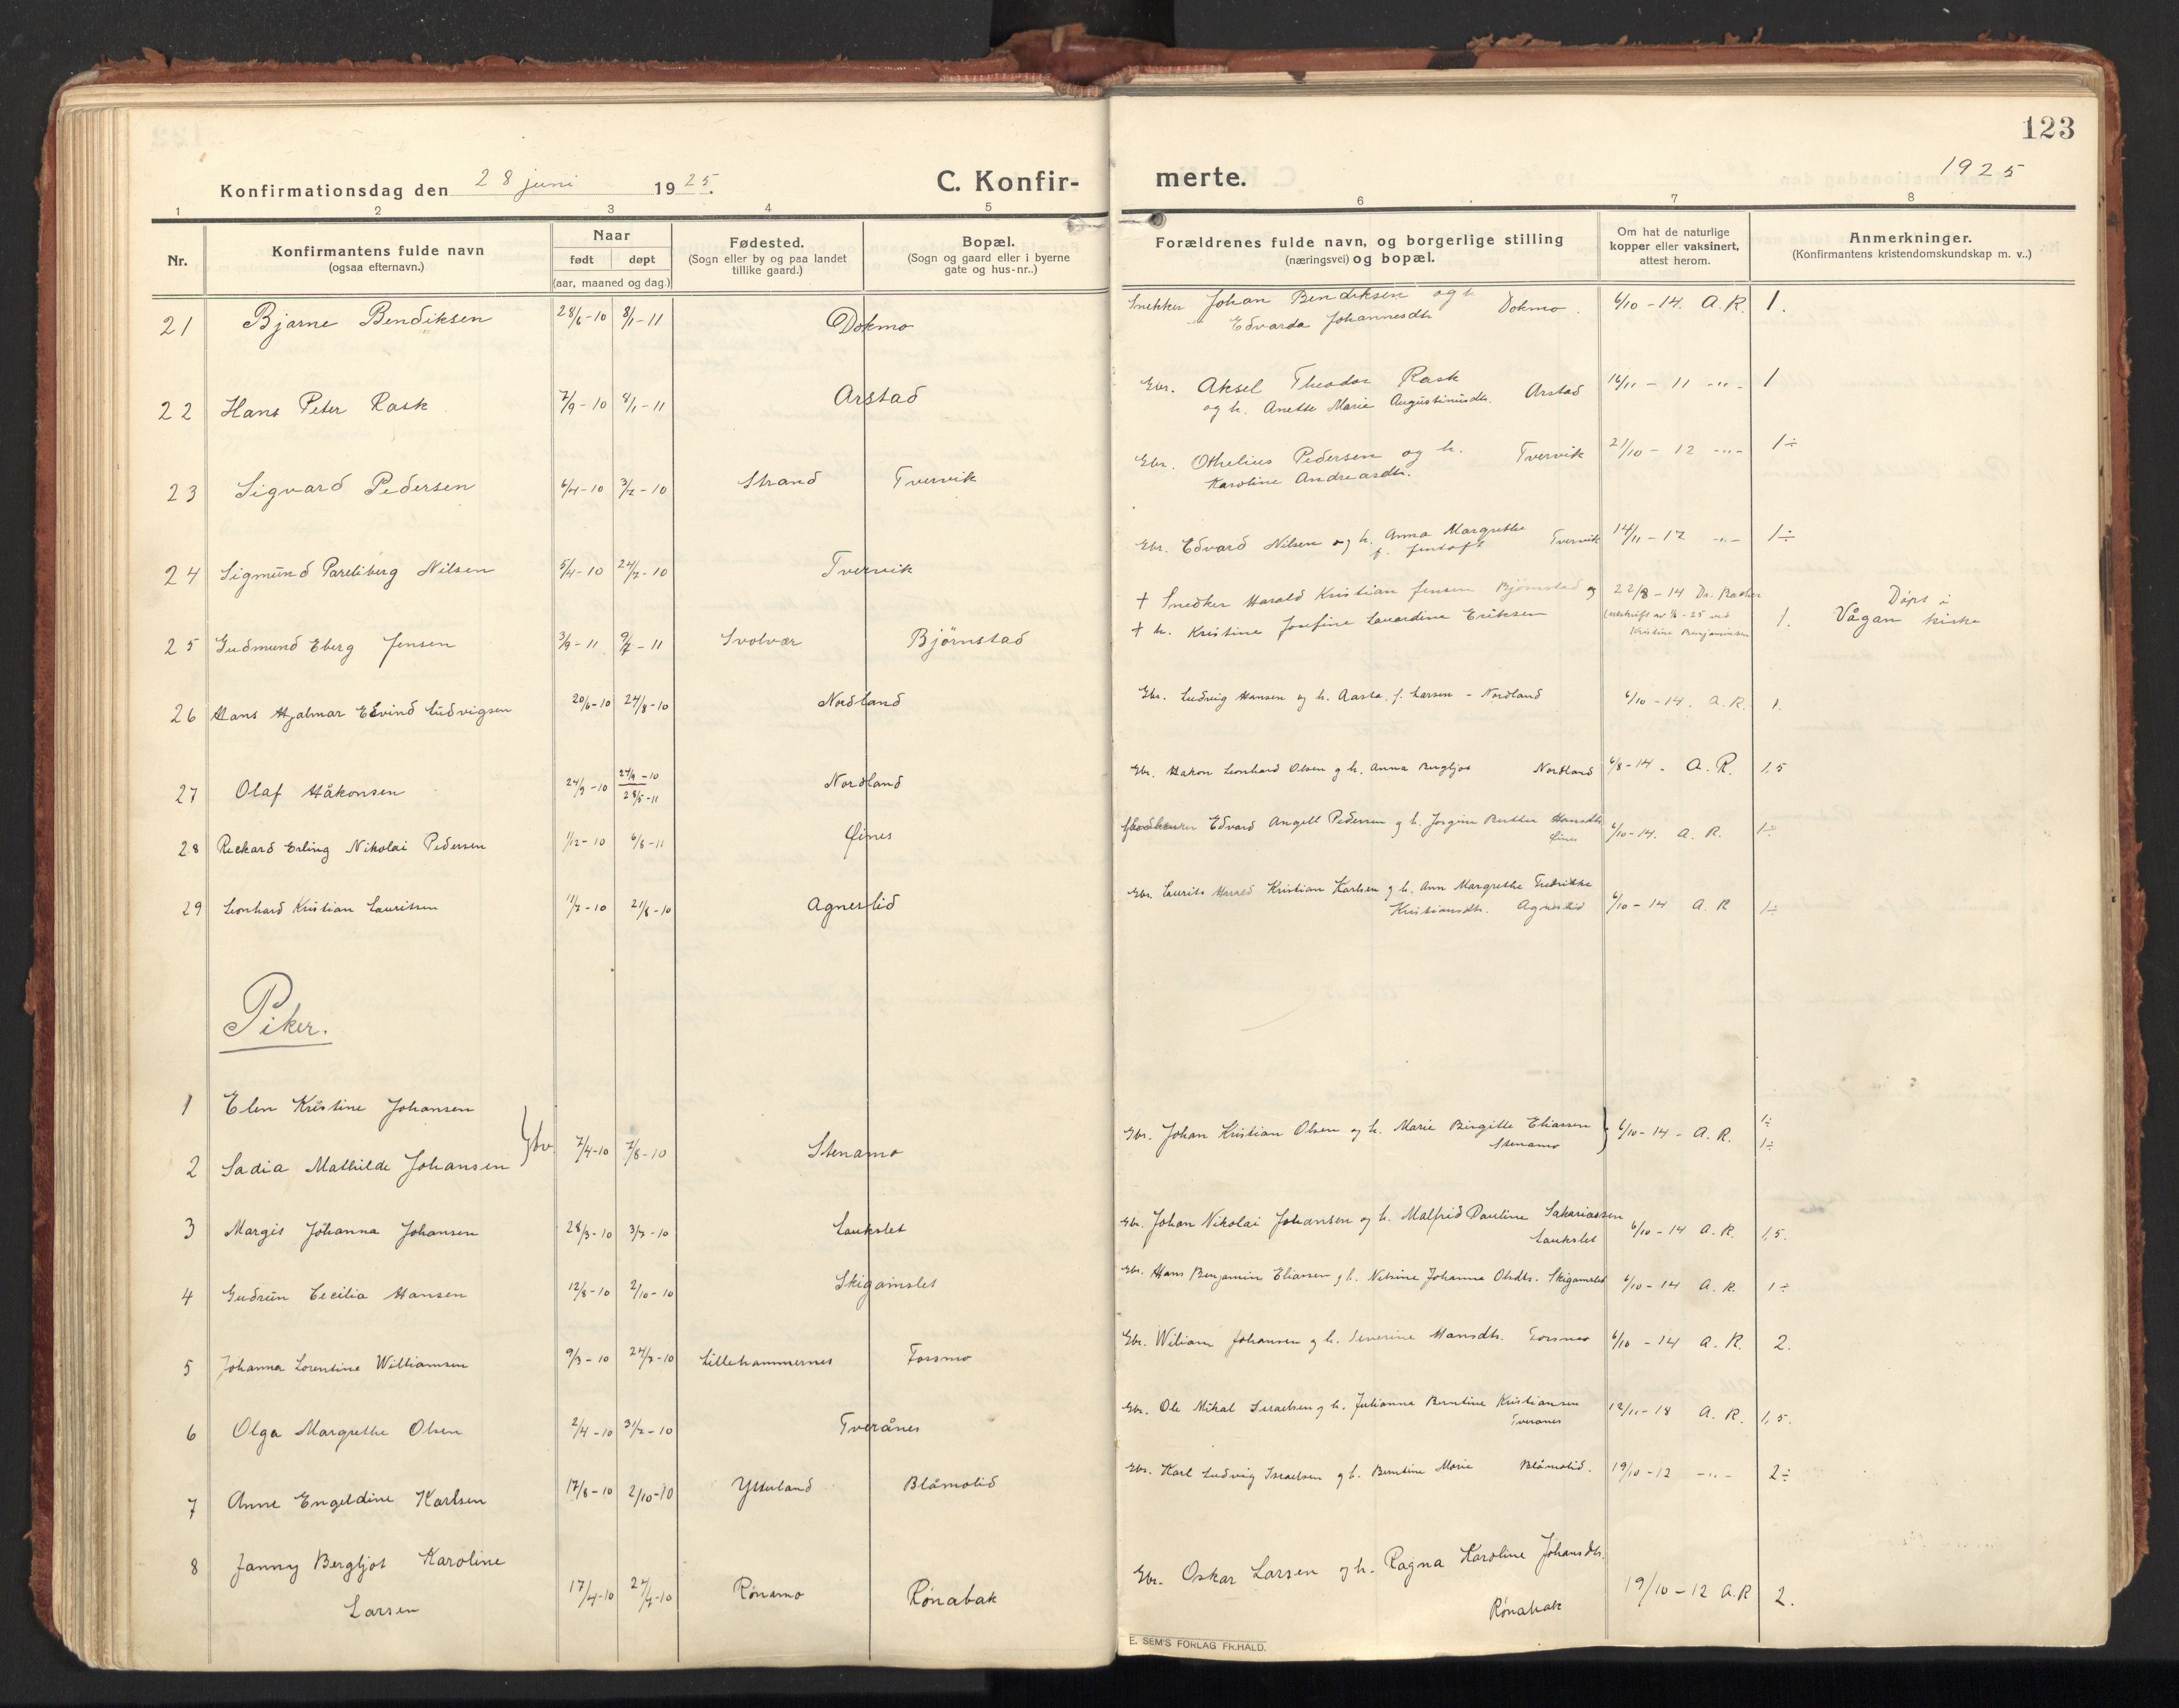 123
Konfirmationsdag den 28 juni 1925. C. Konfirmerte. 1925
1 2 3 4 5 6 7 8
Nr. Konfirmantens fulde navn (ogsaa efternavn.) Naar født døpt (aar, maaned og dag.) Fødested. (Sogn eller by og paa landet tillike gaard.) Bopæl. (Sogn og gaard eller i byerne gate og hus-nr..) Forældrenes fulde navn, og borgerlige stilling (næringsvei) og bopæl. Om hat de naturlige kopper eller vaksinert, attest herom. Anmerkninger. (Konfirmantens kristendomskundskap m. v..)
21 Bjarne Bendiksen 28/6-10 8/1-11 Dokmo Snekker Johan Bendiksen og h. Edvarda Johannesdtr Dokmo. 6/10-14. A.R. 1.
22 Hans Peter Rask 7/9-10 8/1-11 Arstad Gbr. Aksel Theodor Rask og h. Anette Marie Augustinusdtr. Arstad 16/11-11 -"- 1
23 Sigvard Pedersen 6/4-10 3/7-10 Strand Tvervik Gbr. Othelius Pedersen og h. Karoline Andreasdtr. Tvervik 21/10-12 -"- 1÷
24 Sigmund Pareliberg Nilsen 5/4-10 24/7-10 Tvervik Gbr. Edvard Nilsen og h. Anna Margrethe f. Jentoft Tvervik 14/11-12 -"- 1÷
25 Gudmund Eberg Jensen 3/9-11 9/7-11 Svolvær Björnstad + Snedker Harald Kristian Jensen Björnstad og + h. Kristine Josefine Lavardine Eriksen 22/8-14 Dr. (utskrift av -25 ved Kristine Benjaminsen 1. Döpt i Vågan kirke
26 Hans Hjalmar Edvind Ludvigsen 20/6-10 24/8-10 Nordland Gbr. Ludvig Hansen og h. Aasta, f. Larsen - Nordland 6/10-14. A.R. 1.
27 Olaf Håkonsen 24/9-10 27/9-10 28/5-11 Nordland Gbr. Hakon Leonhard Olsen g h. Anna Bergljot Nordland 6/8-14. A.R. 1,5
28 Rickard Erling Nikolai Pedersen 1/12-10 6/6-11 Øines Edvard Angell Pedersen g h. Jorgine Berthea Hansdtr. Øines 6/10-14. A.R. 1÷
29 Leonhard Kristian Lauritsen 11/7-10 21/8-10 Agnerlid Gbr. Laurits Harald Kristian Karlsen g h. Ann Margrethe Fredrikke Kristiansdtr. Agnerlid 6/10-14 A.R 1÷
Piker.
1 Elen Kristine Johansen
2 Sadia Mathilde Johansen } tv. 7/4-10 7/8-10 Stenamo Gbr. Johan Kristian Olsen og h. Marie Birgitte Eliassen Stenamo } 6/10-14-A.R. 1÷ 1÷
3 Margit Johanna Johansen 28/3-10 3/7-10 Laukslet Gbr. Johan Nikolai Johansen og h. Malfrid Pauline Sakariassen Laukslet 6/10-14 A.R. 1,5.
4 Gudrun Cecilia Hansen 12/8-10 2/10-10 Skigamslet Gbr. Hans Benjamin Eliassen g h. Nilsine Johanna Olsdtr. Skigamslet 6/10-14 A.R. 1÷
5 Johanna Lorentine Williamsen 9/3-10 24/7-10 Lillehammernes Forsmo Gbr. Wiliam Johansen g h. Severine Hansdtr. Forsmo 6/10-14 A.R. 2.
6 Olga Margrethe Olsen 2/4-10 31/7-10 Tverånes Gbr. Ole Mikal Israelsen g h. Julianna Berntine Kristiansen Tveranes 12/11-18 A.R. 1,5.
7 Anne Engeldine Karlsen 17/8-10 2/10-10 Ytterland Blåmolid Gbr. Karl Ludvig Israelsen g h. Berntine Marie Blåmolid. 19/10-12 -"- 2÷
8 Janny Bergljot Karoline Larsen 17/4-10 24/7-10 Rönamo Rönabak Gbr. Oskar Larsen og h. Ragna Karoline Johansdtr. Rönabak 19/10-12 A.R 2.
E. SEM'S FORLAG FR.HALD.